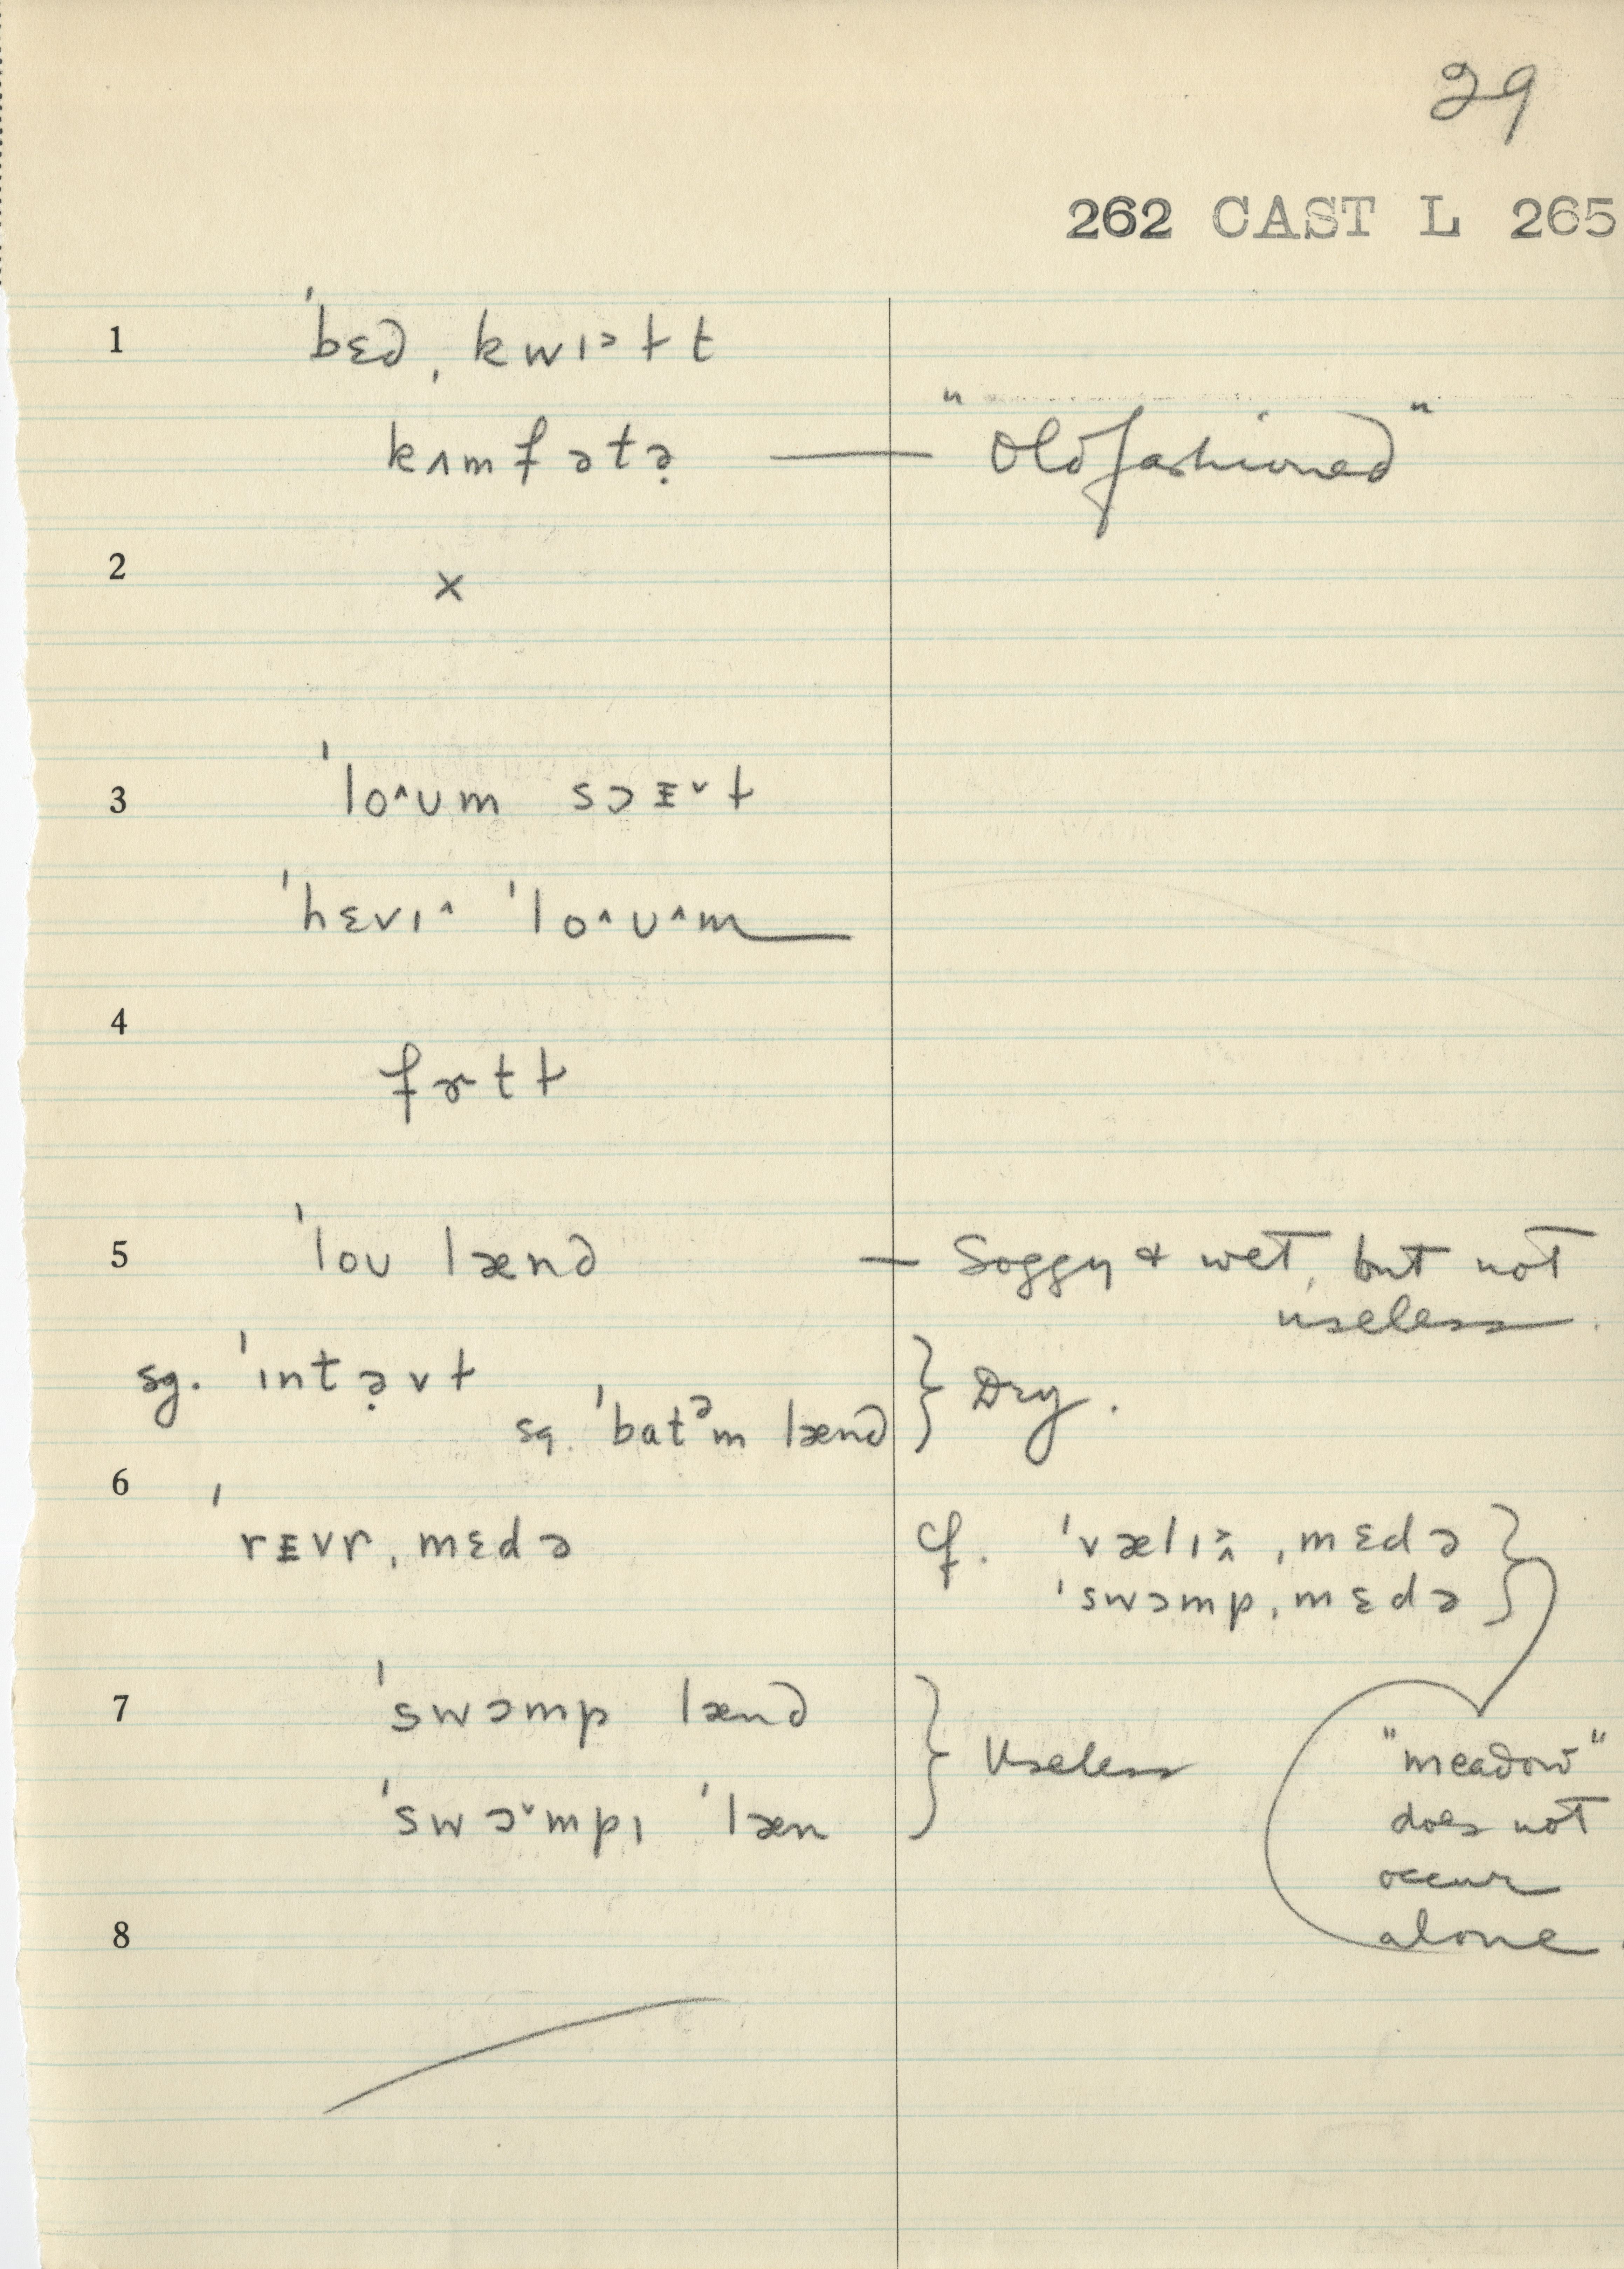 29
262 CAST L 265
1 ˈbɛd ˌkwɪ˃ɫt
kʌmfətə̣ — "Old fashioned"
2 ×
3 ˈlo˄ʊm sɔᴇ˅ɫ
ˈhɛvɪ˄ ˈlo˄ʊ˄m
4 fɚtɫ
5 ˈloʊ lænd — Soggy & wet, but not
useless.
sg. ˈɪntə̣vɫ } Dry.
sg. ˈbatᵊm lænd
6 ˈrᴇvr ˌmɛdə cf. ˈvælɪ˄˃ ˌmɛdə }
ˈswɔmp ˌmɛdə }
7 ˈswɔmp lænd } Useless
ˈswɔ˅mpɪ ˈlæn
"meadow"
does not
occur
alone.
8